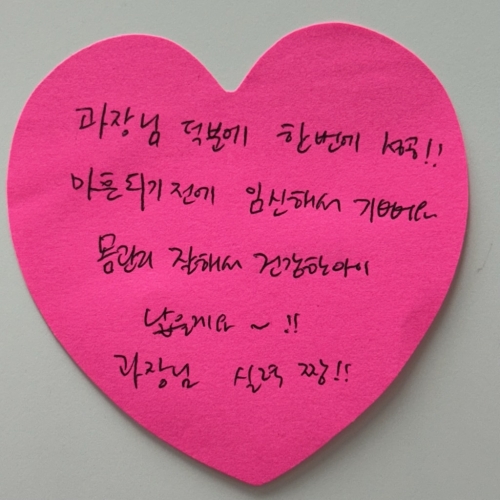 과장님 덕분에 한번에 성공!!
마흔되기전에 임신해서 기뻐요
몸관리 잘해서 건강한아이
낳을게요 ~ !!
과장님 실력 짱!!